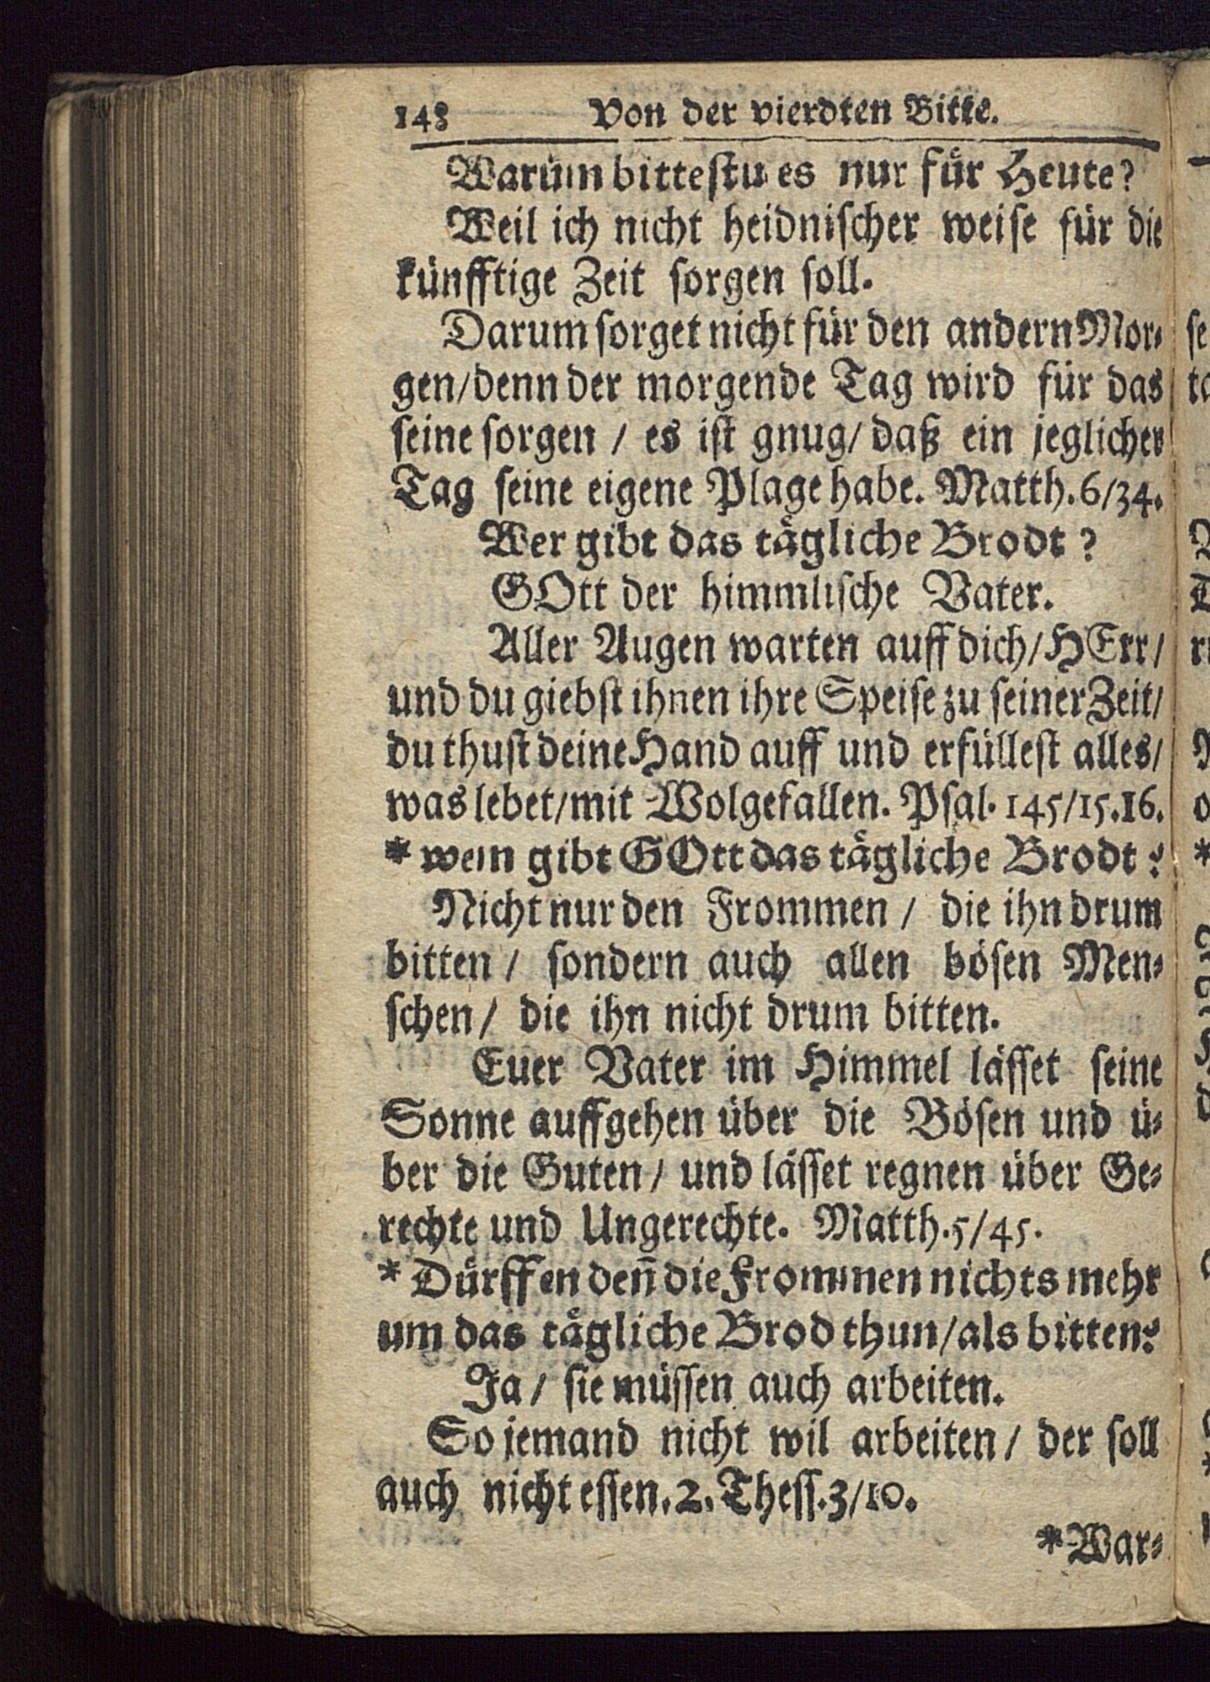 148 Von der vierdten Bitte.
Warum bittestu es nur für Heute?
Weil ich nicht heidnischer weise für die
künfftige Zeit sorgen soll.
Darum sorget nicht für den andern Mor-
gen/denn der morgende Tag wird für das
seine sorgen / es ist gnug/ daß ein jeglicher
Tag seine eigene Plage habe. Matth. 6/34.
Wer gibt das tägliche Brodt ?
GOtt der himmlische Vater.
Aller Augen warten auff dich/HErr/
und du giebst ihnen ihre Speise zu seiner Zeit/
du thust deine Hand auff und erfüllest alles/
was lebet/mit Wolgefallen. Psal. 145/15.16.
* wem gibt GOtt das tägliche Brodt ?
Nicht nur den Frommen / die ihn drum
bitten / sondern auch allen bösen Men-
schen / die ihn nicht drum bitten.
Euer Vater im Himmel lässet seine
Sonne auffgehen über die Bösen und ü-
ber die Guten / und lässet regnen über Ge-
rechte und Ungerechte. Matth. 5/45.
* Dürffen deñ die Frommen nichts mehr
um das tägliche Brod thun/als bitten?
Ja / sie müssen auch arbeiten.
So jemand nicht wil arbeiten / der soll
auch nicht essen. 2. Thess. 3/10.
*War-